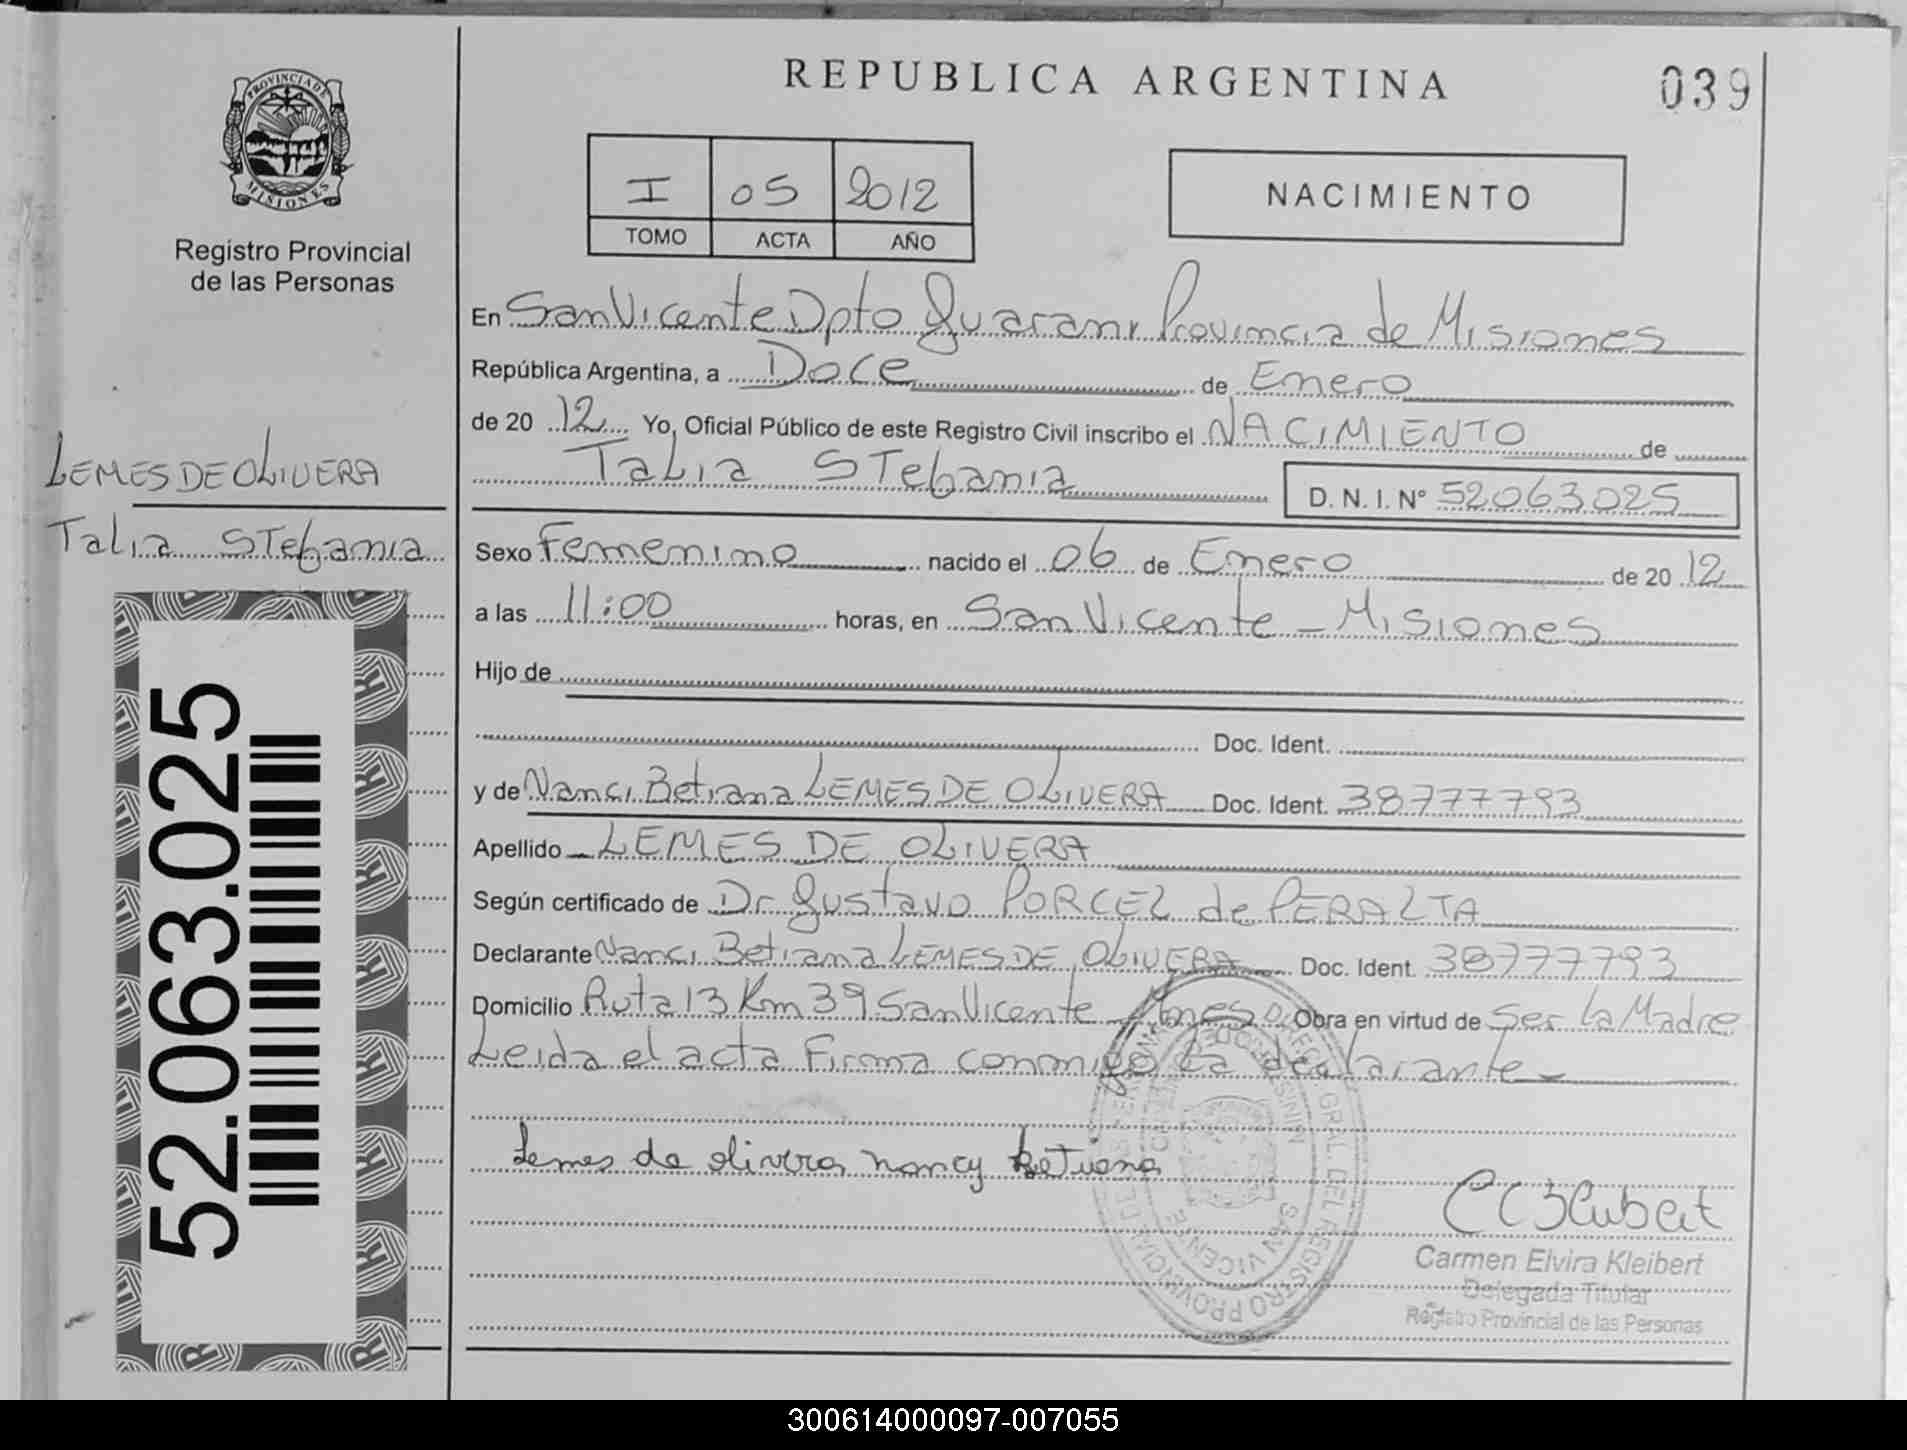 REPUBLICA ARGENTINA
039
PROVINCIA DE
MISIONES
Registro Provincial
de las Personas
I 05 2012
TOMO ACTA AÑO
NACIMIENTO
En San Vicente Dpto Guarani Provincia de Misiones
República Argentina, a Doce de Enero
de 20 12 Yo, Oficial Público de este Registro Civil inscribo el NACIMIENTO de
Talia STefania D. N. I. Nº 52063025
LEMES DE OLIVERA
Talia STefania
Sexo Femenino nacido el 06 de Enero de 20 12
a las 11:00 horas, en San Vicente - Misiones
Hijo de
Doc. Ident.
y de Nanci Betiana LEMES DE OLIVERA Doc. Ident. 38777793
Apellido LEMES DE OLIVERA
Según certificado de Dr Gustavo PORCEL de PERALTA
Declarante Nanci Betiana LEMES DE OLIVERA Doc. Ident. 38777793
Domicilio Ruta 13 Km 39 San Vicente - Mnes Obra en virtud de Ser La Madre
Leida el acta Firma conmigo La declarante
Lemes de olivera nancy Betiana
Carmen Elvira Kleibert
Delegada Titular
Registro Provincial de las Personas
52.063.025
300614000097-007055